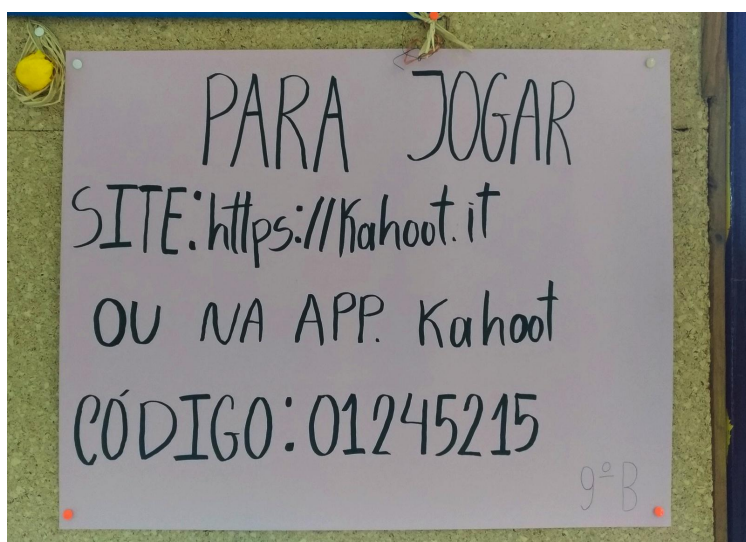 PARA JOGAR
SITE: https://Kahoot.it
OU NA APP. Kahoot
CÓDIGO: 01245215
9º B